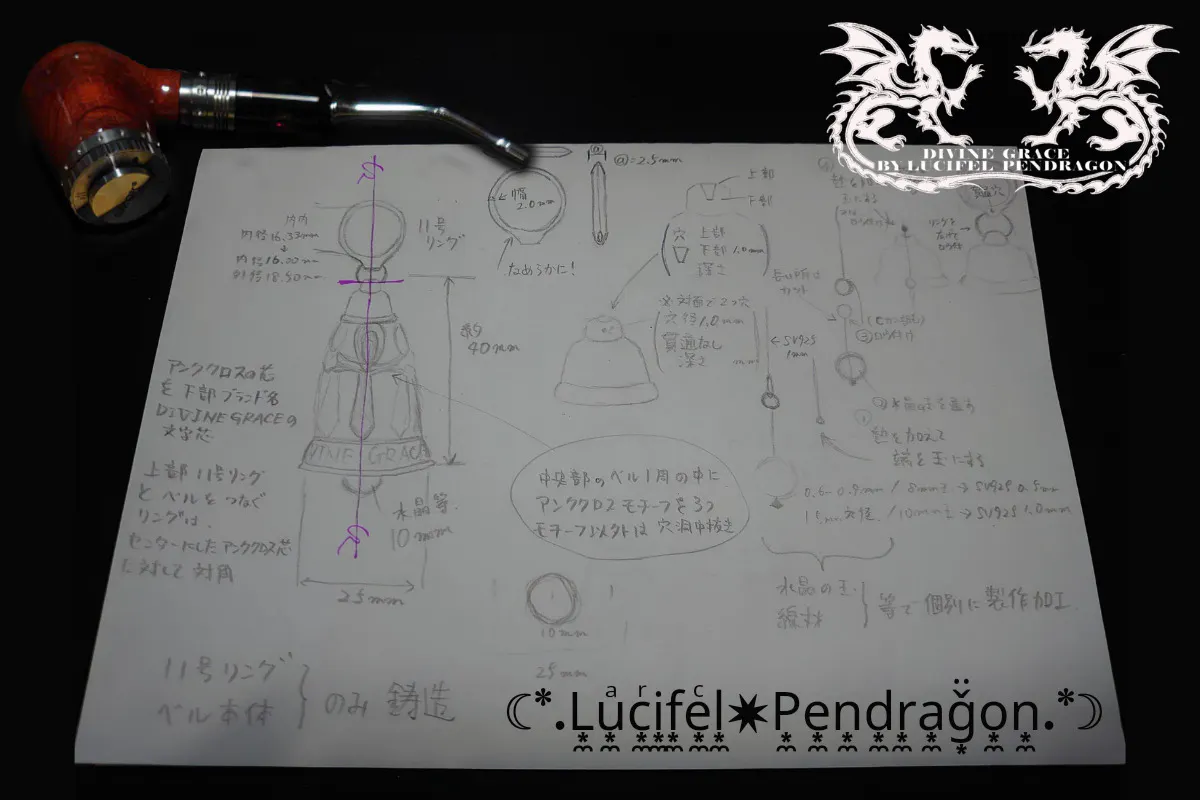 DIVINE GRACE
BY LUCIFEL PENDRAGON
幅
2.0mm
なめらかに!
@=2.5mm
上部
下部
穴 上部
下部 1.0mm
深さ
11号
リング
内径16.33mm
内径16.00mm
外径18.50mm
約
40mm
※対面で2つ穴
穴径1.0mm
貫通なし
深さ mm
長い所は
カット
←SV925
1mm
リングを
(Cカン状)
③ロウ付け
アンククロスの芯
を下部ブランド名
DIVINE GRACEの
文字芯
VINE GRAC
上部11号リング
とベルをつなぐ
リングは、
センターにしたアンククロス芯
に対して対角
水晶等
10mm
25mm
中央部のベル1周の中に
アンククロスモチーフを3つ
モチーフ以外は穴洞中抜き
熱を加えて
端を玉にする
0.6-0.9mm/8mm玉→SV925 0.5mm
/10mm玉→SV925 1.0mm
水晶の玉
線材
等で個別に製作加工
10mm
25mm
11号リング
ベル本体
のみ鋳造
☾*.Lucifel✷Pendragon.*☽